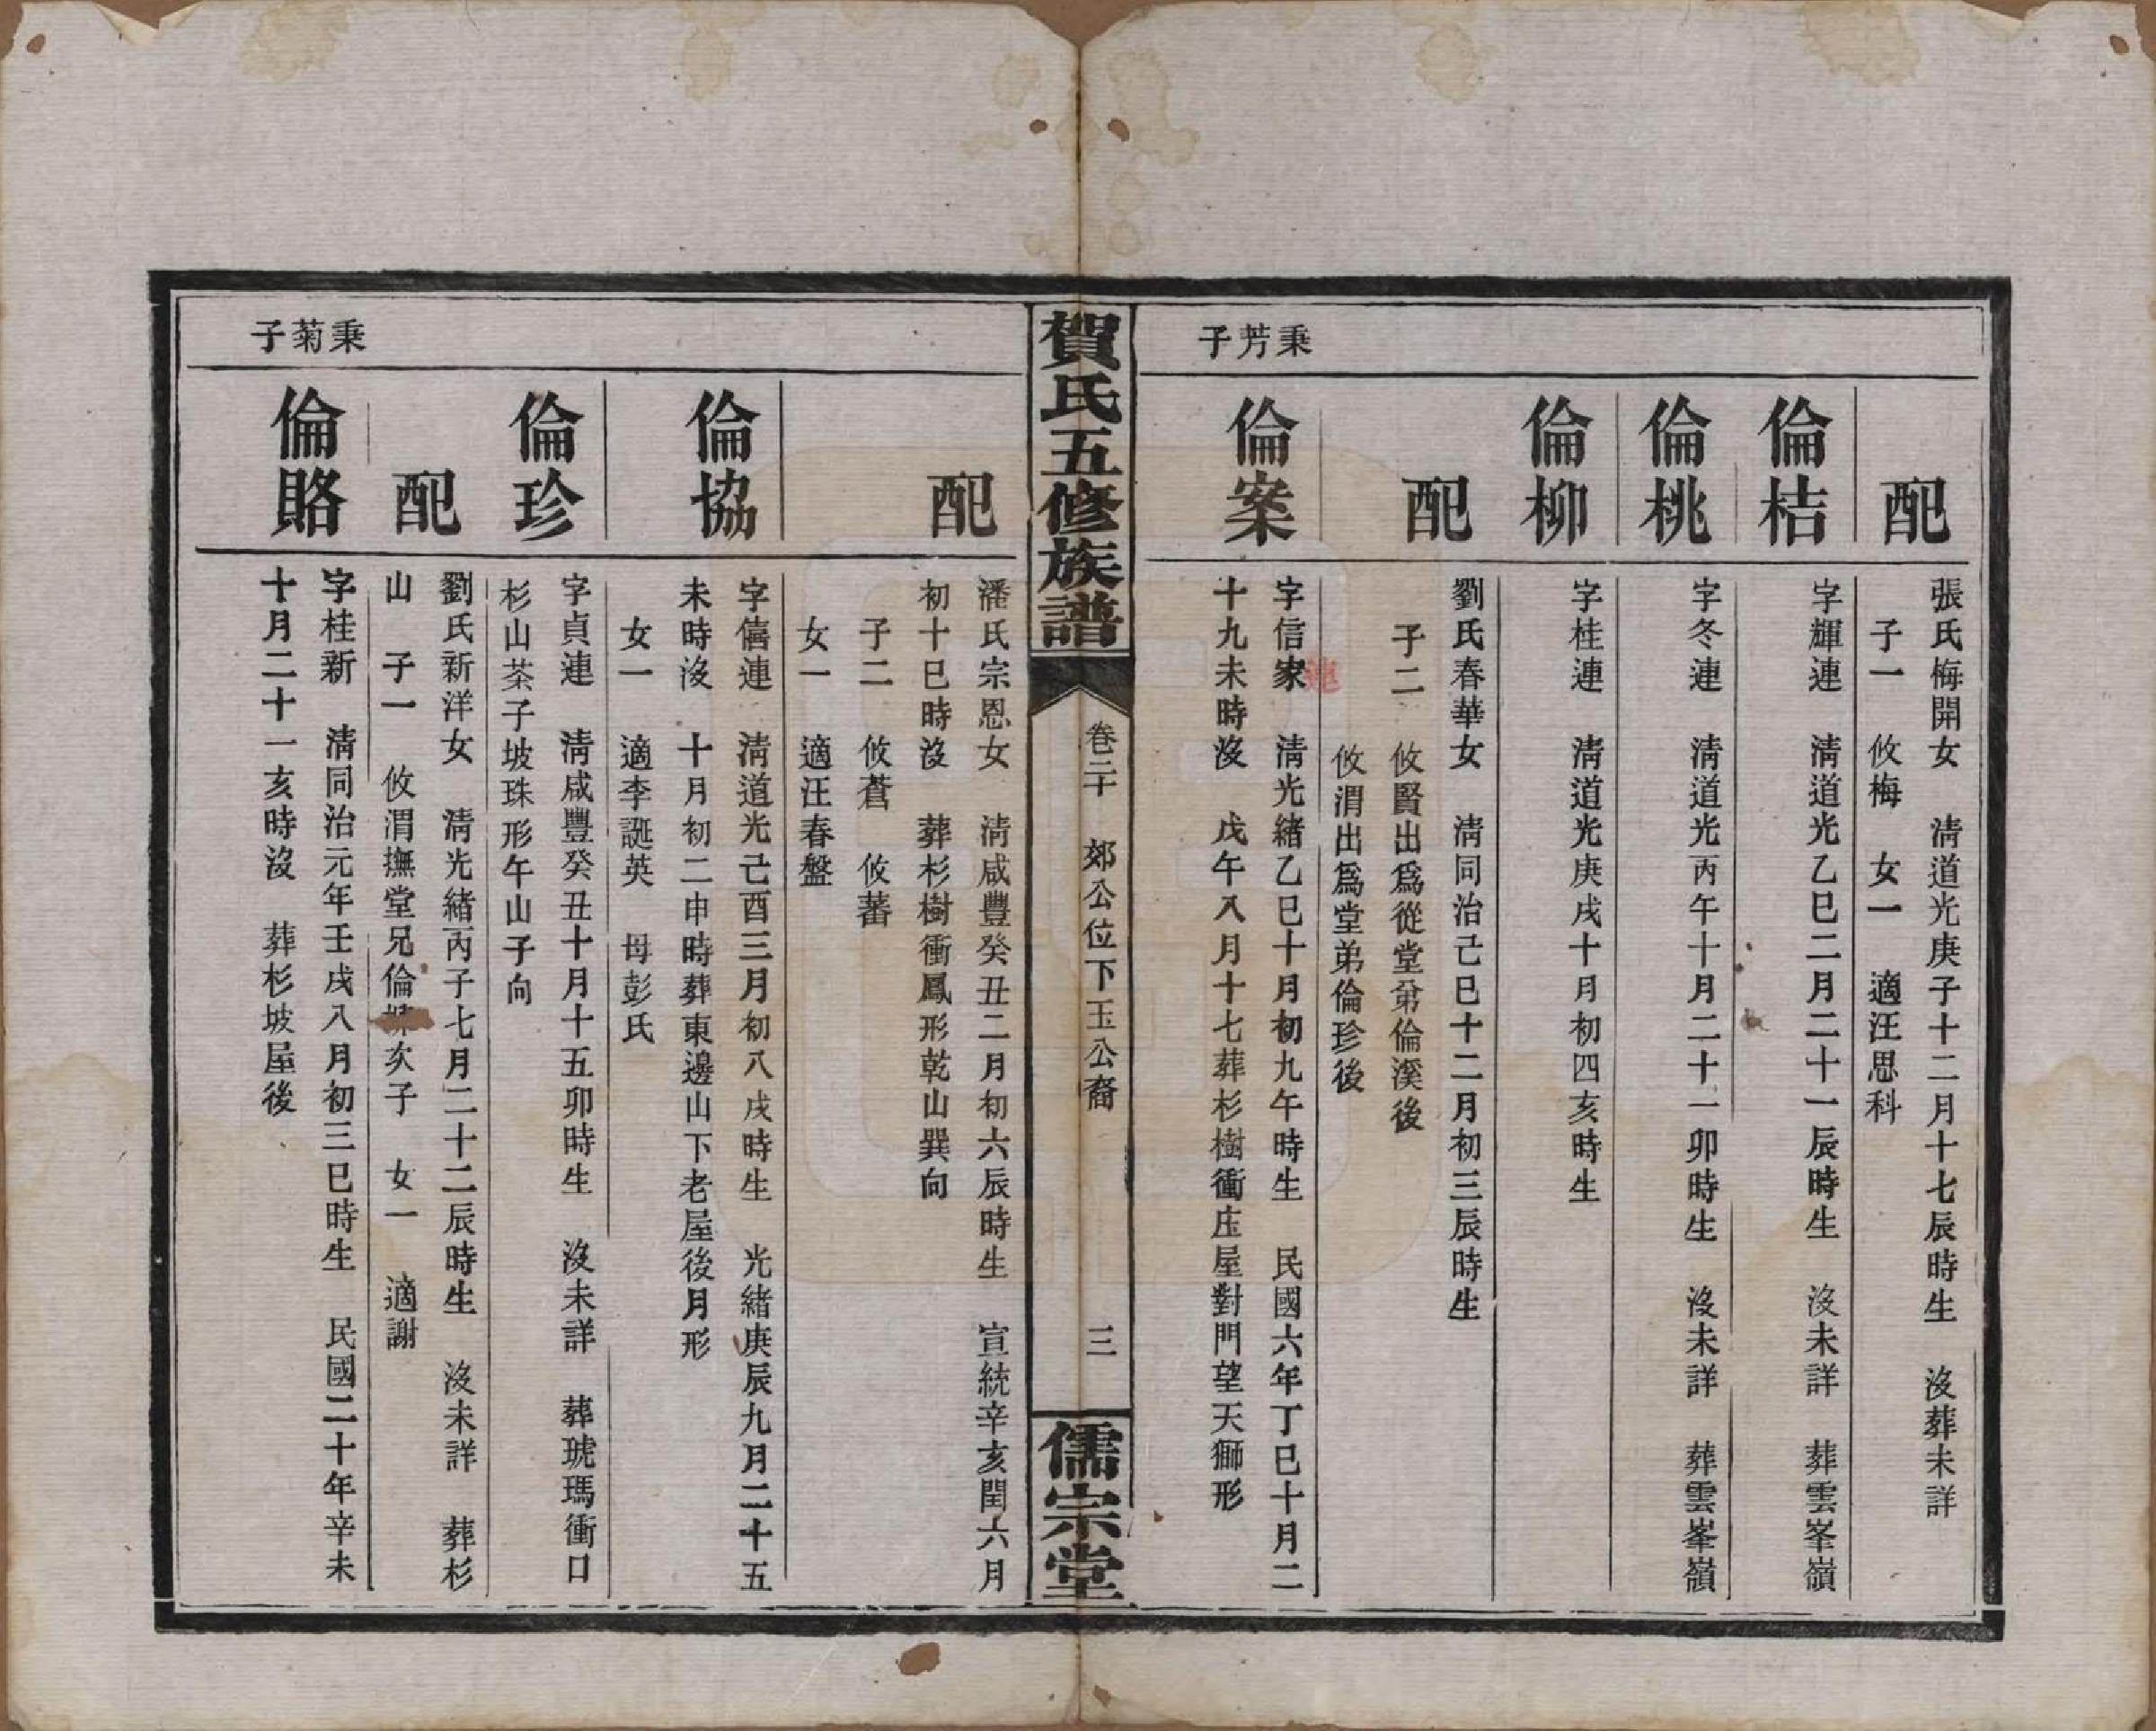 配
張氏梅開女　淸道光庚子十二月十七辰時生　沒葬未詳
子一　攸梅　女一　適汪思科
倫桔
字輝連　淸道光乙巳二月二十一辰時生　沒未詳　葬雲峯嶺
倫桃
字冬連　淸道光丙午十月二十一卯時生　沒未詳　葬雲峯嶺
倫柳
字桂連　淸道光庚戌十月初四亥時生
配
劉氏春華女　淸同治己巳十二月初三辰時生
子二　攸賢出爲從堂弟倫溪後
攸渭出爲堂弟倫珍後
秉芳子
倫案
字信家　淸光緒乙巳十月初九午時生　民國六年丁巳十月二
蓮
十九未時沒　戊午八月十七葬杉樹衝庄屋對門望天獅形
賀氏五修族譜
卷二十　郊公位下玉公裔　三
儒宗堂
配
潘氏宗恩女　淸咸豐癸丑二月初六辰時生　宣統辛亥閏六月
初十巳時沒　葬杉樹衝鳳形乾山巽向
子二　攸蒼　攸蕃
女一　適汪春盤
倫協
字僖連　淸道光己酉三月初八戌時生　光緒庚辰九月二十五
未時沒　十月初二申時葬東邊山下老屋後月形
女一　適李誕英　母彭氏
倫珍
字貞連　淸咸豐癸丑十月十五卯時生　沒未詳　葬琥瑪衝口
杉山茶子坡珠形午山子向
配
劉氏新洋女　淸光緒丙子七月二十二辰時生　沒未詳　葬杉
山　子一　攸渭撫堂兄倫次子　女一　適謝
秉菊子
倫賂
字桂新　淸同治元年壬戌八月初三巳時生　民國二十年辛未
十月二十一亥時沒　葬杉坡屋後